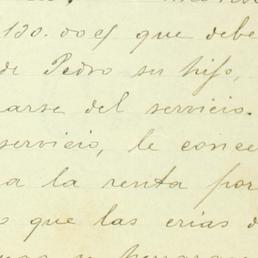 130.00 que debe
de Pedro su hijo,
arse del servicio.
servicio, le conce
a la renta por
que las crias d